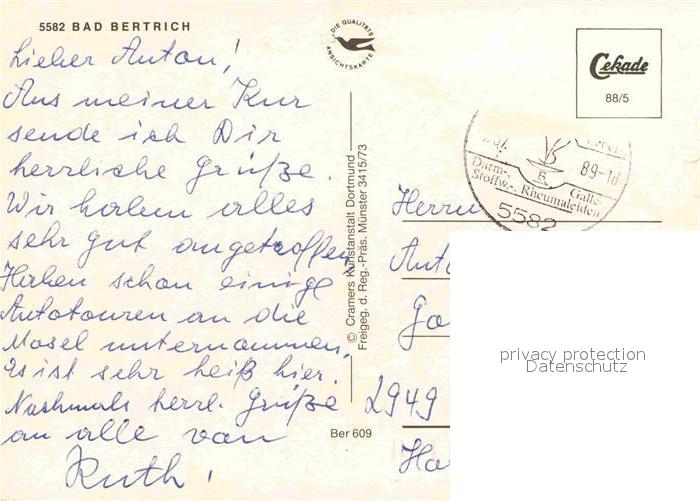 5582 BAD BERTRICH
Lieber Anton!
Aus meiner Kur
sende ich Dir
herrliche Grüße.
Wir haben alles
sehr gut angetroffen,
Haben schon einige
Autotouren an die
Mosel unternommen,
Es ist sehr heiß hier.
Nochmals herrl. Grüße
an alle von
Ruth!
DIE QUALITÄTS
ANSICHTSKARTE
© Cramers Kunstanstalt Dortmund
Freigeg. d. Reg.-Präs. Münster 3415/73
Ber 609
Cekade
88/5
89-1d
Darm-, Galle
Stoffw.-, Rheumaleiden
5582
Herrn
2949
privacy protection
Datenschutz